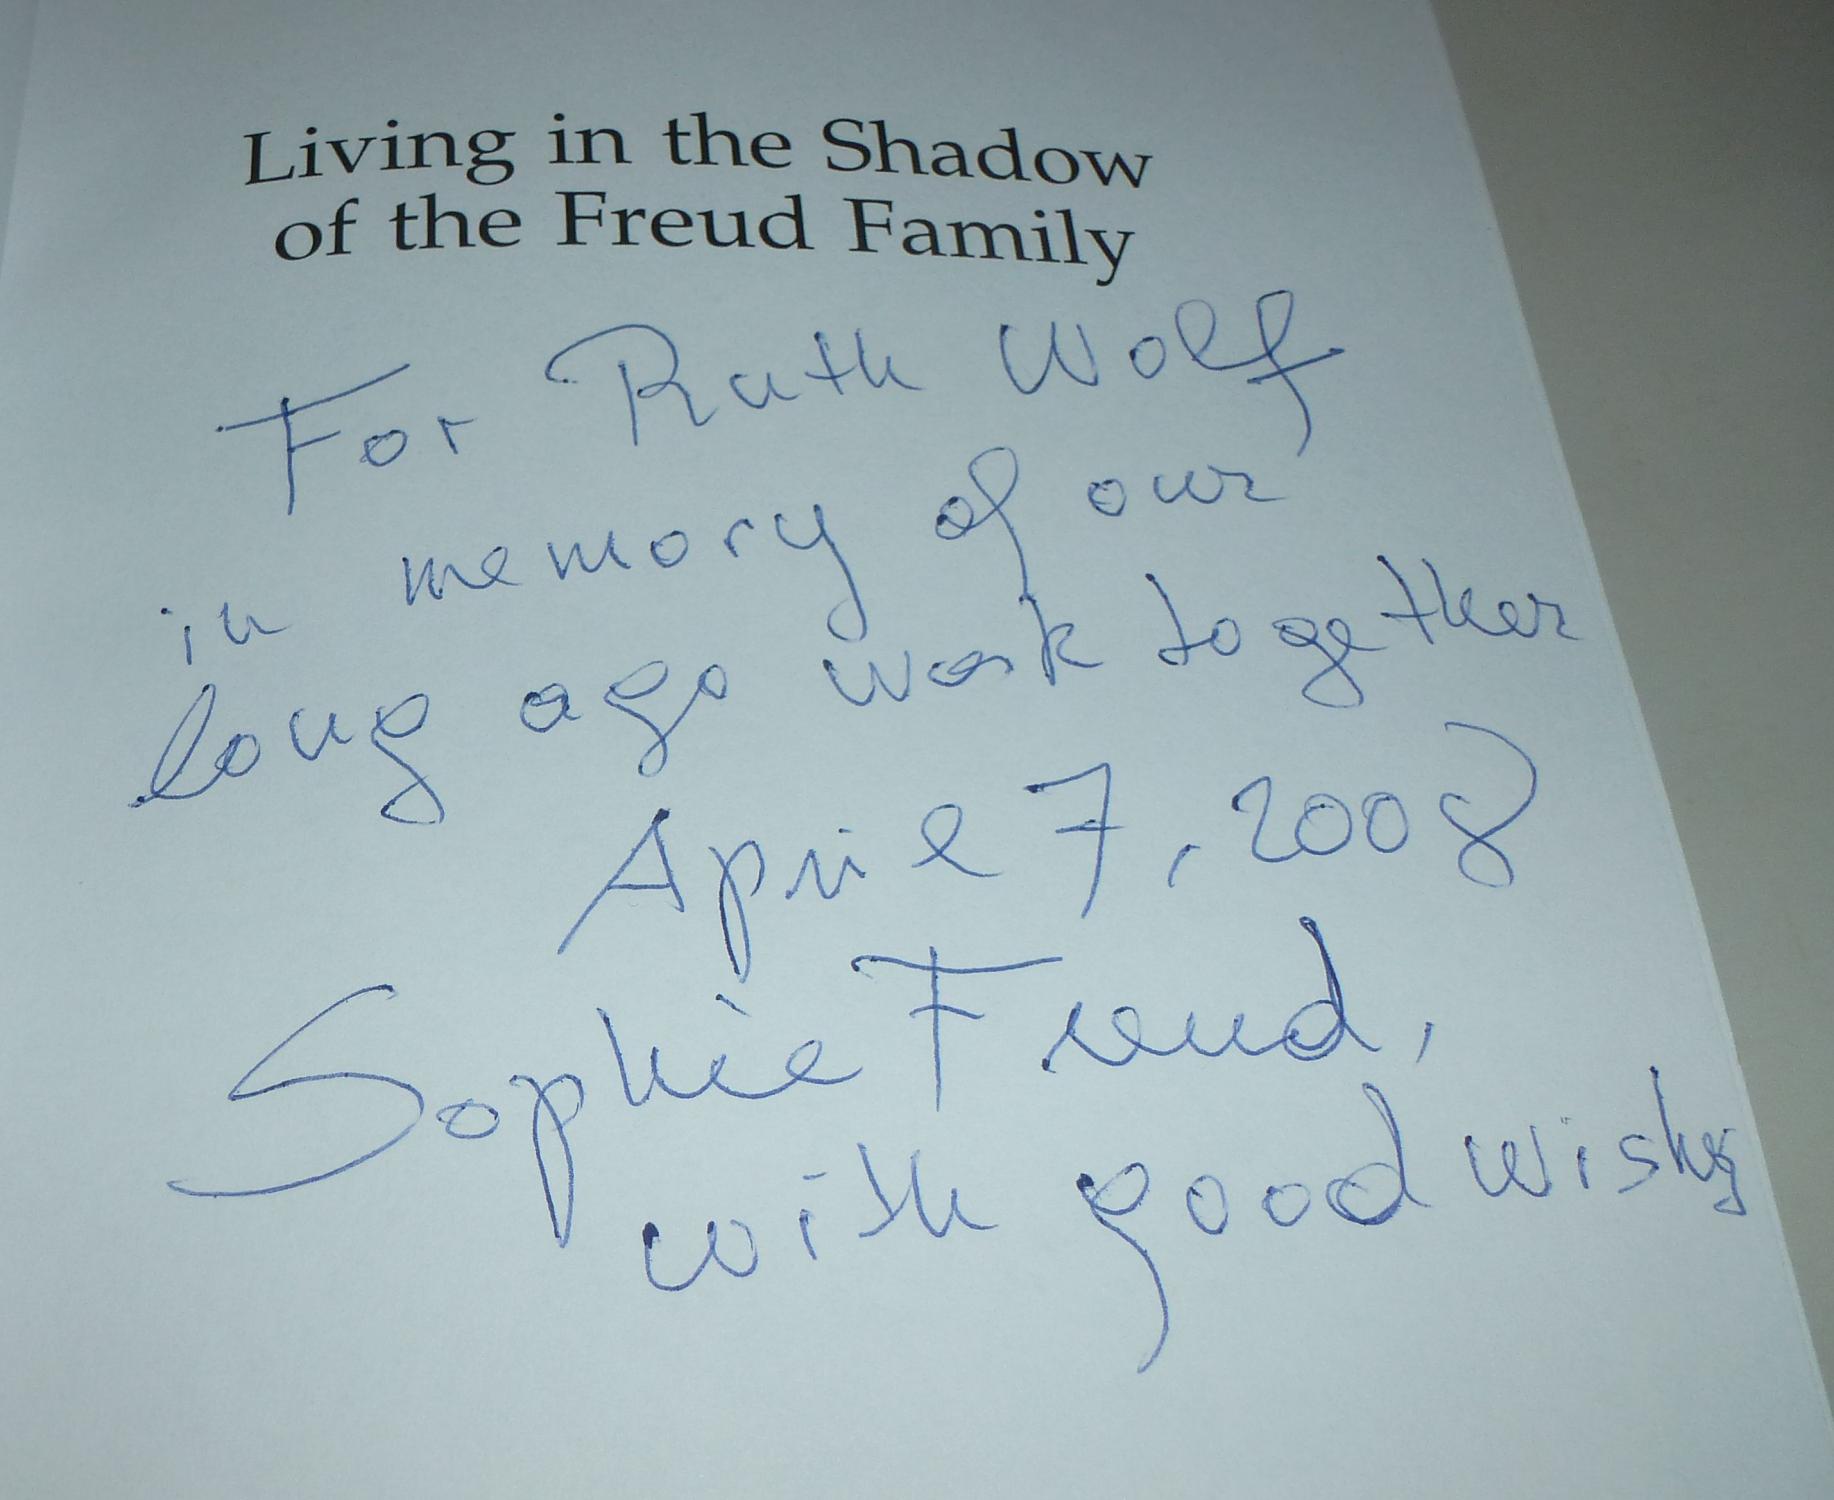 Living in the Shadow
of the Freud Family
For Ruth Wolf
in memory of our
long ago work together
April 7, 2008
Sophie Freud,
with good wishes